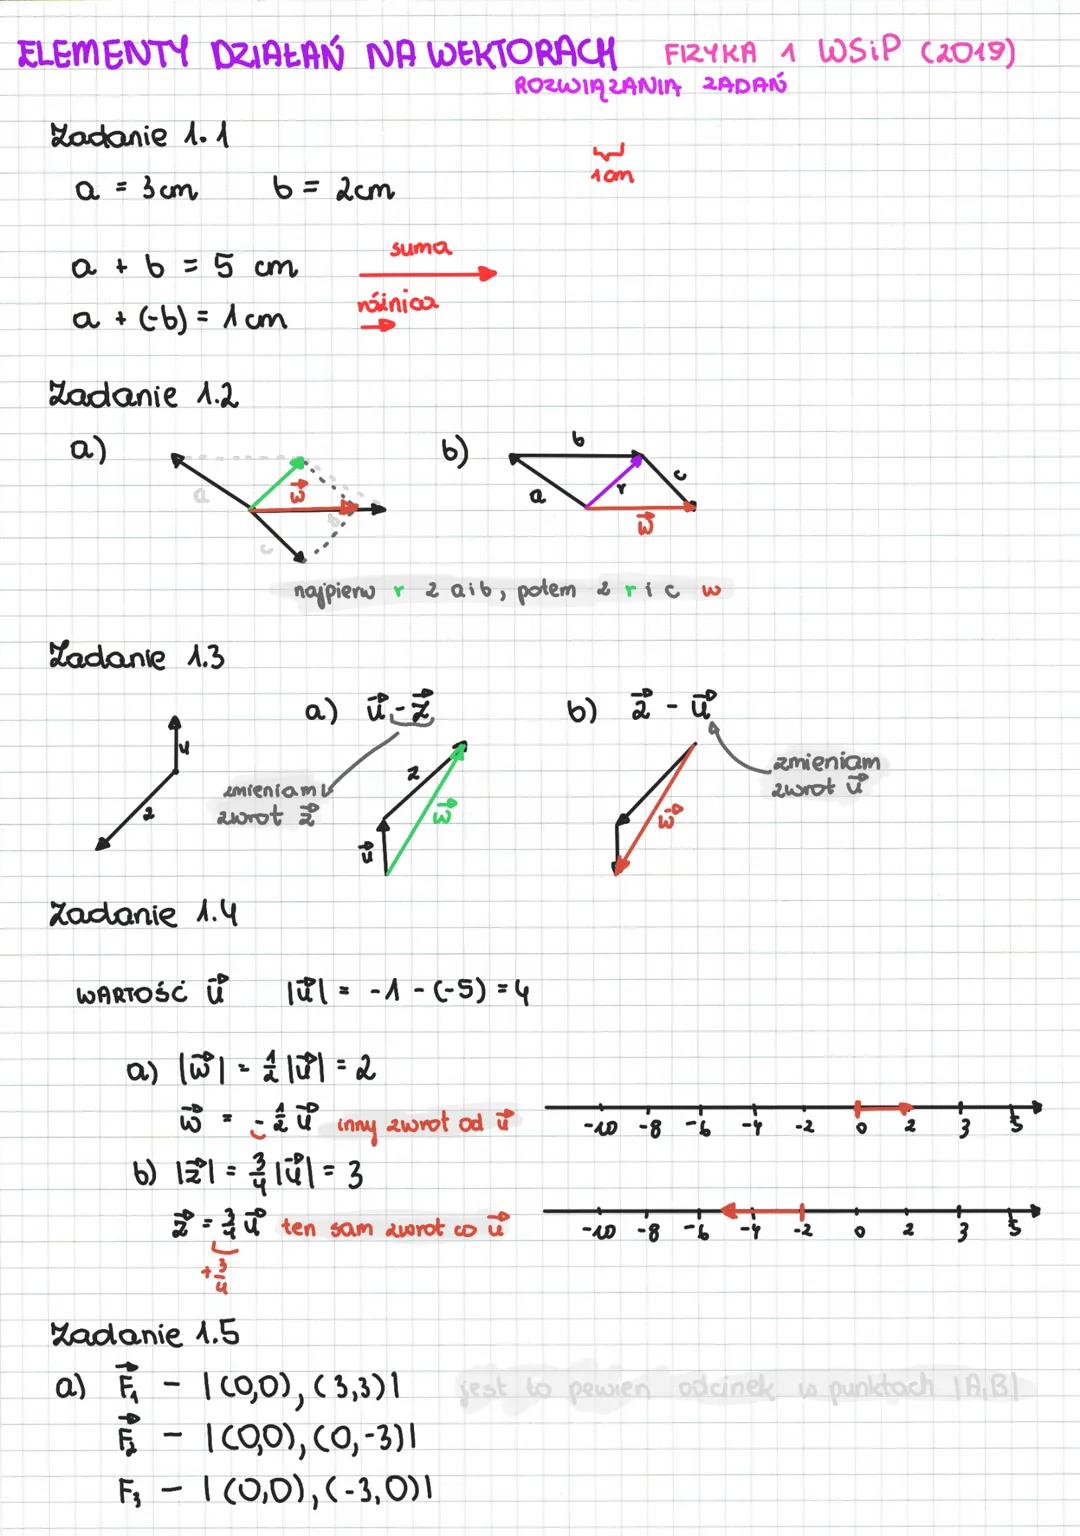 ELEMENTY DZIAŁAŃ NA WEKTORACH FIZYKA 1 WSiP (2019)
ROZWIĄZANIA ZADAŃ
Zadanie 1.1
1cm
a = 3cm b = 2cm
suma
a + b = 5 cm
różnica
a + (-b) = 1cm
Zadanie 1.2
a) a w⃗ b c
b) b a r c w⃗
najpierw r z a i b, potem z r i c w
Zadanie 1.3
a) u⃗ - z⃗ b) z⃗ - u⃗
u z
zmieniam
zwrot z⃗
z w⃗ u⃗
w⃗
zmieniam
zwrot u⃗
Zadanie 1.4
WARTOŚĆ u⃗ |u⃗| = -1 - (-5) = 4
a) |w⃗| = 1/2 |u⃗| = 2
w⃗ = - 1/2 u⃗ inny zwrot od u⃗
-10 -8 -6 -4 -2 0 2 3 5
b) |z⃗| = 3/4 |u⃗| = 3
z⃗ = 3/4 u⃗ ten sam zwrot co u⃗
-10 -8 -6 -4 -2 0 2 3 5
+ 3/4
Zadanie 1.5
a) F⃗₁ - |(0,0), (3,3)| jest to pewien odcinek w punktach |A,B|
F⃗₂ - |(0,0), (0,-3)|
F₃ - |(0,0), (-3,0)|